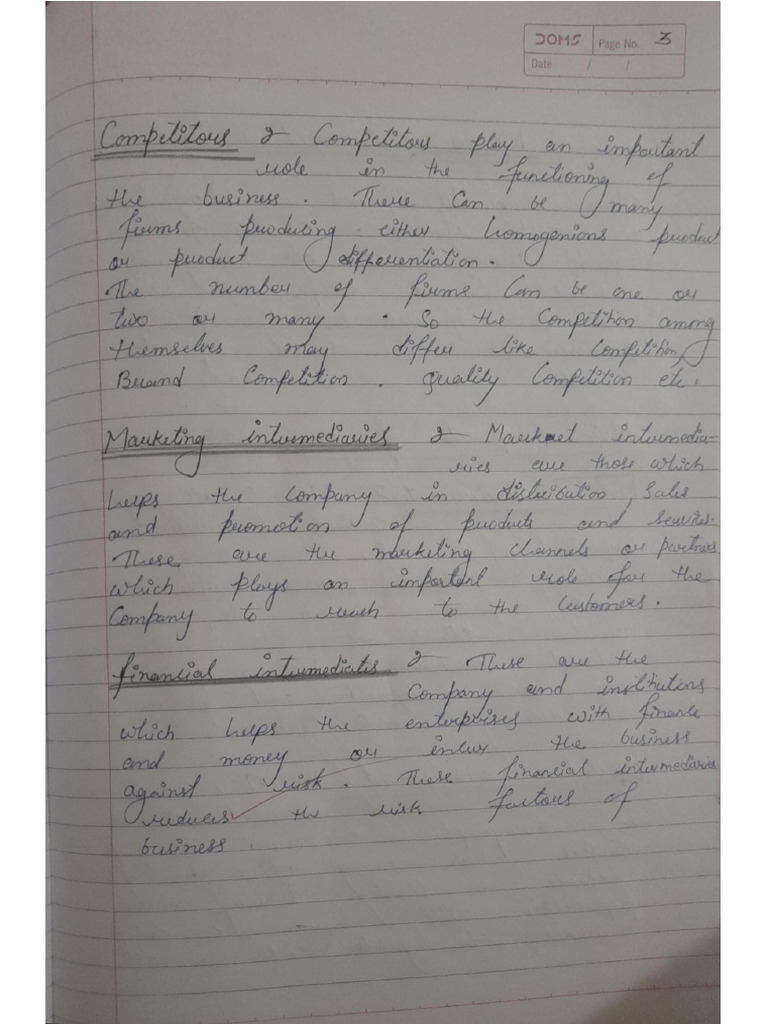 DOMS Page No. 3
Date / /
Competitors :- Competitors play an important
role in the functioning of
the business. There can be many
firms producing either homogenions product
or product differentiation.
The number of firms can be one or
two or many. So the Competition among
themselves may differ like Competition,
Brand Competition. quality Competition etc.
Marketing intermediaries :- Market intermedia-
ries are those which
helps the company in distribution, sales
and promotion of products and services.
These are the marketing channels or partners
which plays an important role for the
Company to reach to the customers.
financial intermediates :- These are the
Company and institutions
which helps the enterprises with finance
and money or the business
against risk. These financial intermediaries
reduces the risk factors of
business.